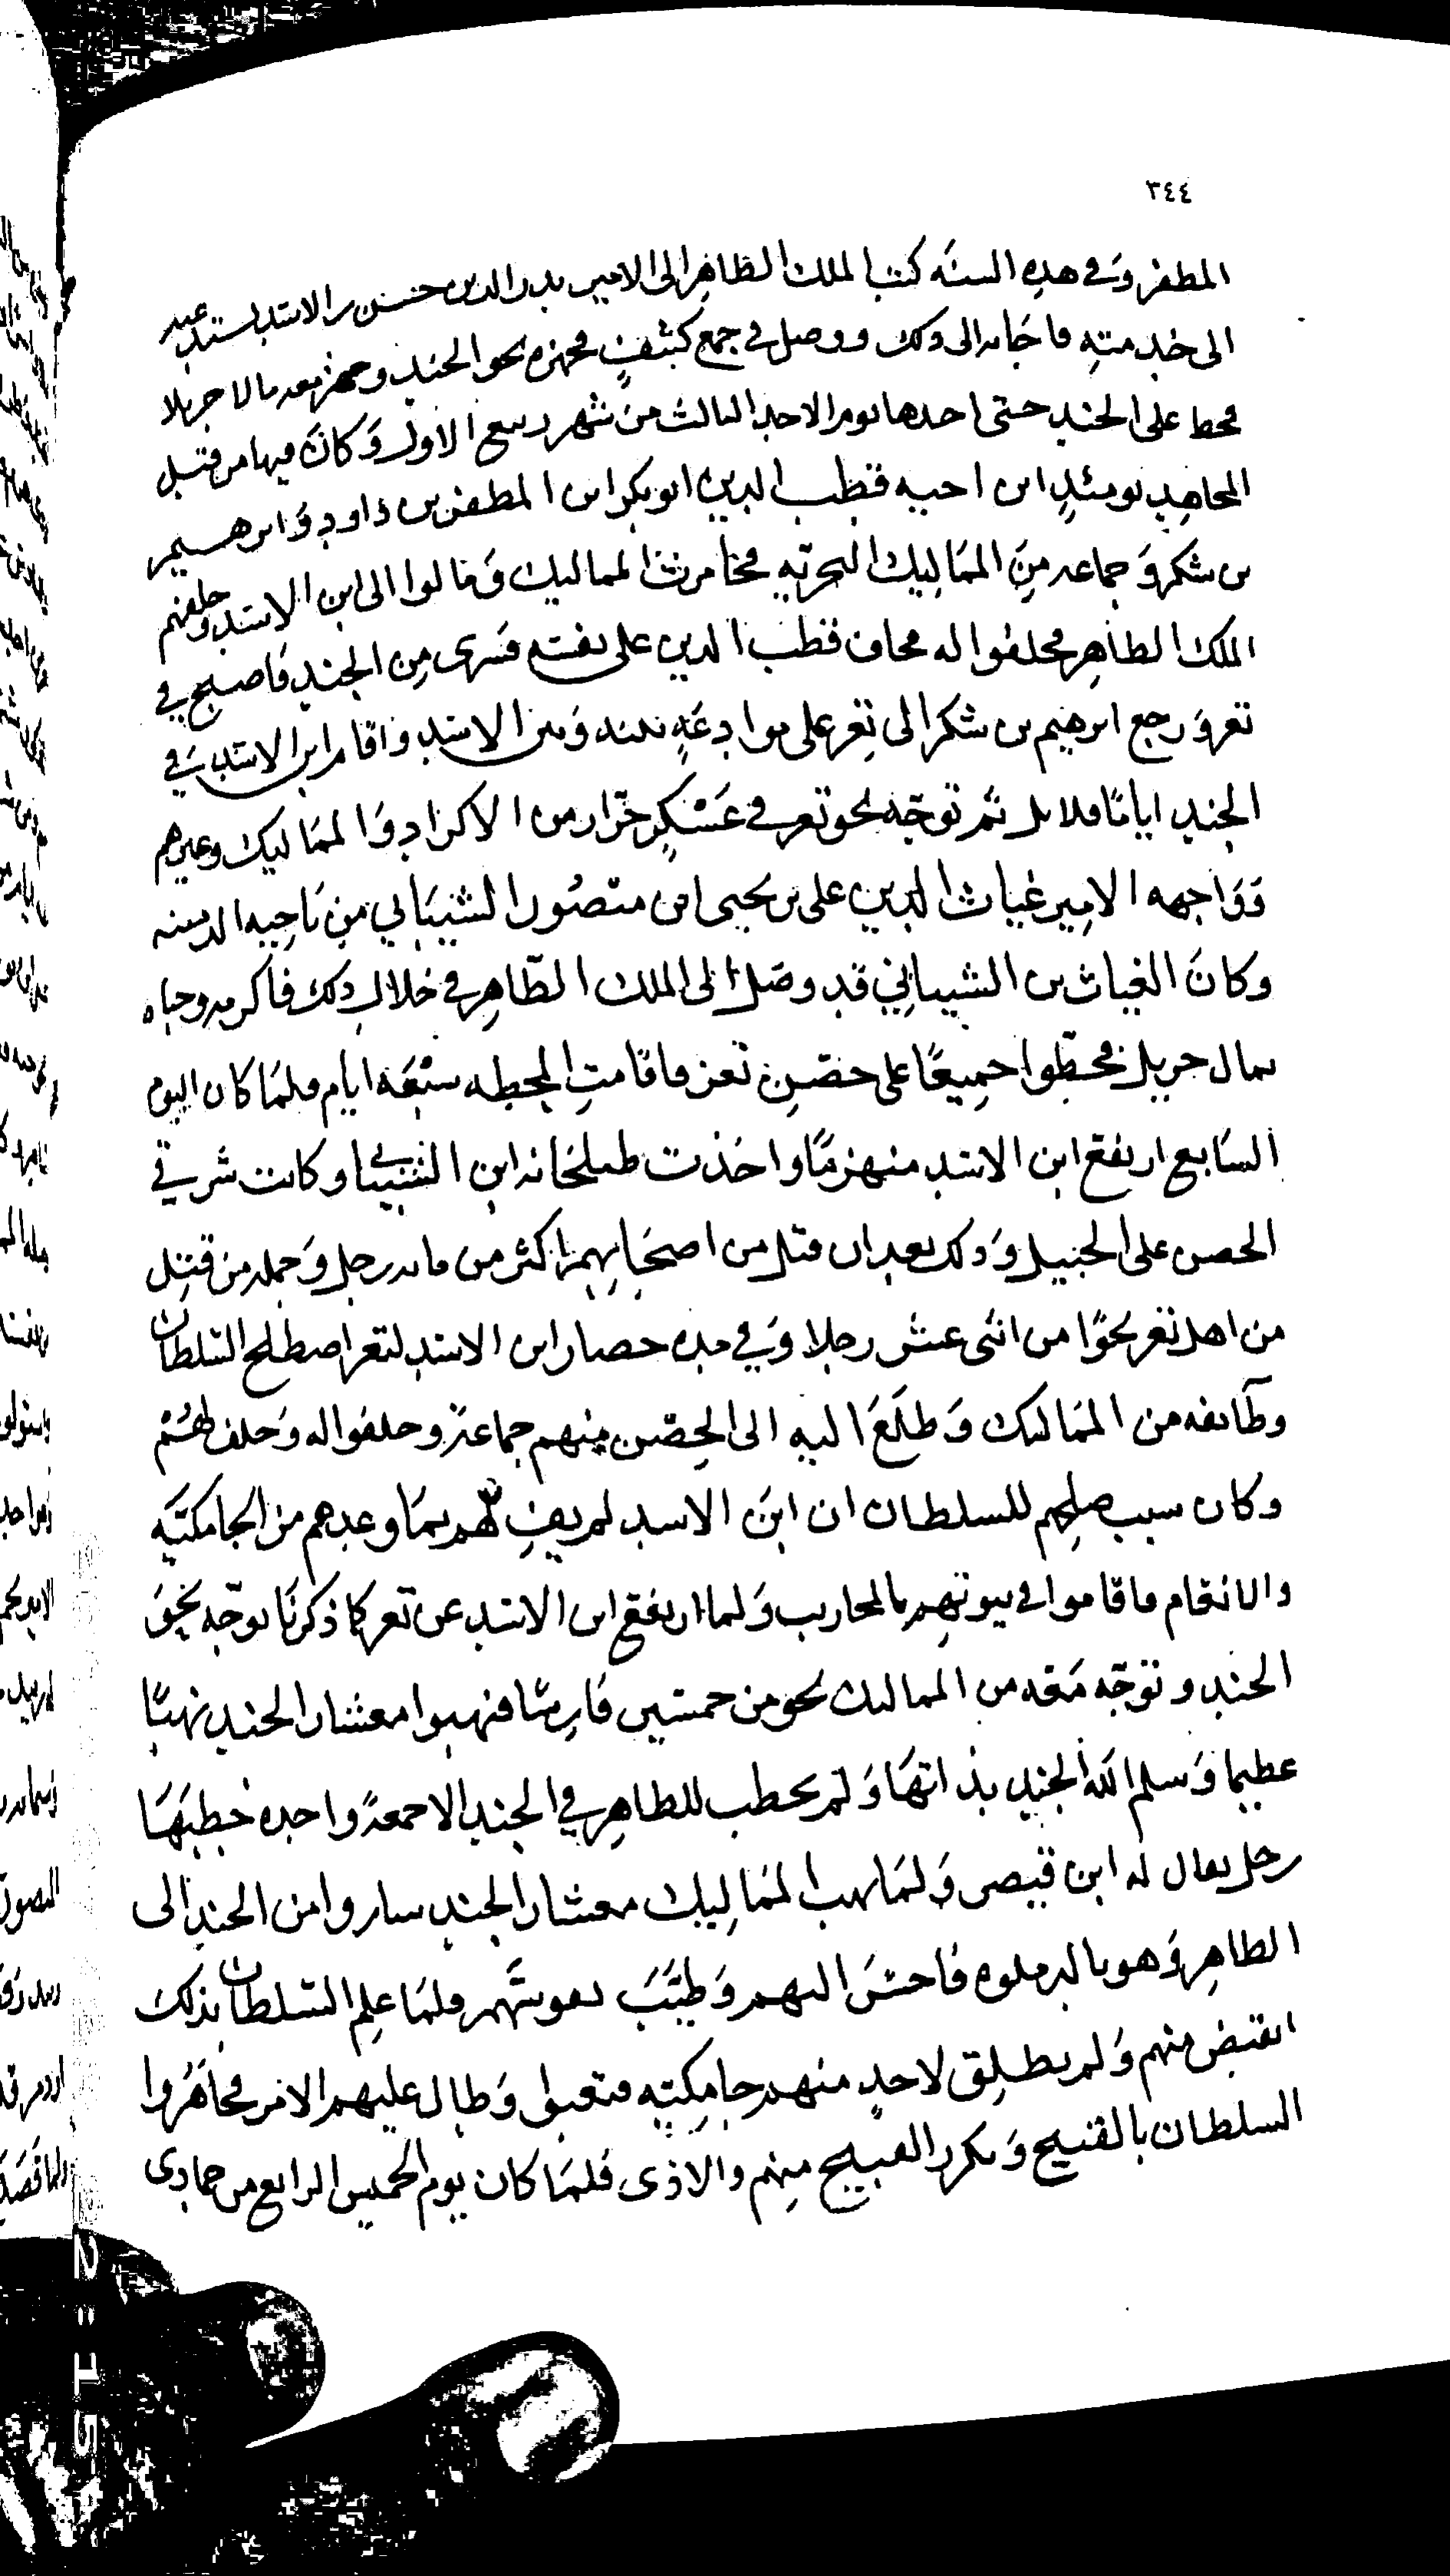 ٣٤٤
المظفر وَفي هذه السنه كتب الملك الظاهِر الى الامير بدر الدين حسن بن الاسد يستدعيه
الى خدمتهِ فاجابه الى ذلك ووصل في جمع كثيفٍ فجهزه نحو الجند وجهز معه مالا جزيلا
فحط على الجند حتى اخذها يوم الاحد الثالث من شهر ربيع الاول وَكان فيها من قبل
المجاهد يومئذٍ ابن اخيه قطب الدين ابو بكر ابن المظفر بن داود وَابرهيم
بن شكر وَجماعه مِنَ المماليك البحريّه فخامرت المماليك وَمالوا الى ابن الاسد وحلفهم
الملك الظاهر فحلفوا له فخاف قطب الدين على نفسه فسرى مِن الجند فاصبح في
تعز وَرجع ابرهيم بن شكر الى تعِز على موادعَةٍ بينه وَبين الاسد واقام ابن الاسد في
الجند ايامًا قلايل ثم توجّه نحو تعز في عَسْكرٍ جرّار من الاكراد وَالمماليك وغيرهم
وَوَاجهه الامير غياث الدين على بن يحيى ابن منصُور الشيبَاني من نَاحِيه الدمينه
وكانَ الغياث بن الشيباني قد وصَل الى الملك الظّاهِر في خلال ذلك فاكرمه وحباه
بمال جزيل فحطّوا جميعًا على حصْن تعز فاقامتِ المحطه سبْعَه ايام فلمَا كان اليوم
السَابع ارتفع ابن الاسد منهزمًا واخذت طبلخانه ابن الشيبا ني وكانت شرقي
الحصن على الجبيل وَذلك بعد ان قتل من اصحَابِهم اكثر من مايه رجل وَجمله من قتِل
من اهل تعز نحوًا من اثنى عشر رجلا وَفي مده حصار ابن الاسد لتعز اصطلح السلطان
وطآيفه من المماليك وَطلَعَ اليه الى الحِصْن مِنهم جماعَة وحلفوا له وَحلف لهُم
وكان سبب صلحِهم للسلطان ان ابنَ الاسد لم يفِ لهم بمَا وعدهم من الجامكيَه
والانعام فاقاموا في بيوتهِم بالمحاريب وَلما ارتفع ابن الاسد عن تعز كما ذكرنَا توجّه نحوَ
الجند وتوجّه مَعَه من المماليك نحو من خمسين فَارسًا فنهبوا معشار الجند نهبًا
عظيما وَسلم الله الجند بذاتهَا وَلم يخطب للظاهِر في الجند الا جمعةً واحده خطبَهَا
رجل يقال له ابن قبيصى وَلمَا نهب المَماليك معشار الجند ساروا من الجند الى
الظاهِر وَهو بالدملوه فاحسَن اليهم وَطيَّبَ نفوسَهم فلمَا علِم السلطان بذلك
انقبض منهم وَلم يطلِق لاحدٍ منهم جامكيته فتعبوا وَطال عليهم الامر فجاهَرُوا
السلطان بالقبيح وَتكرر القبيح مِنهم والاذى فلمَا كان يوم الخميس الرابع من جمادى